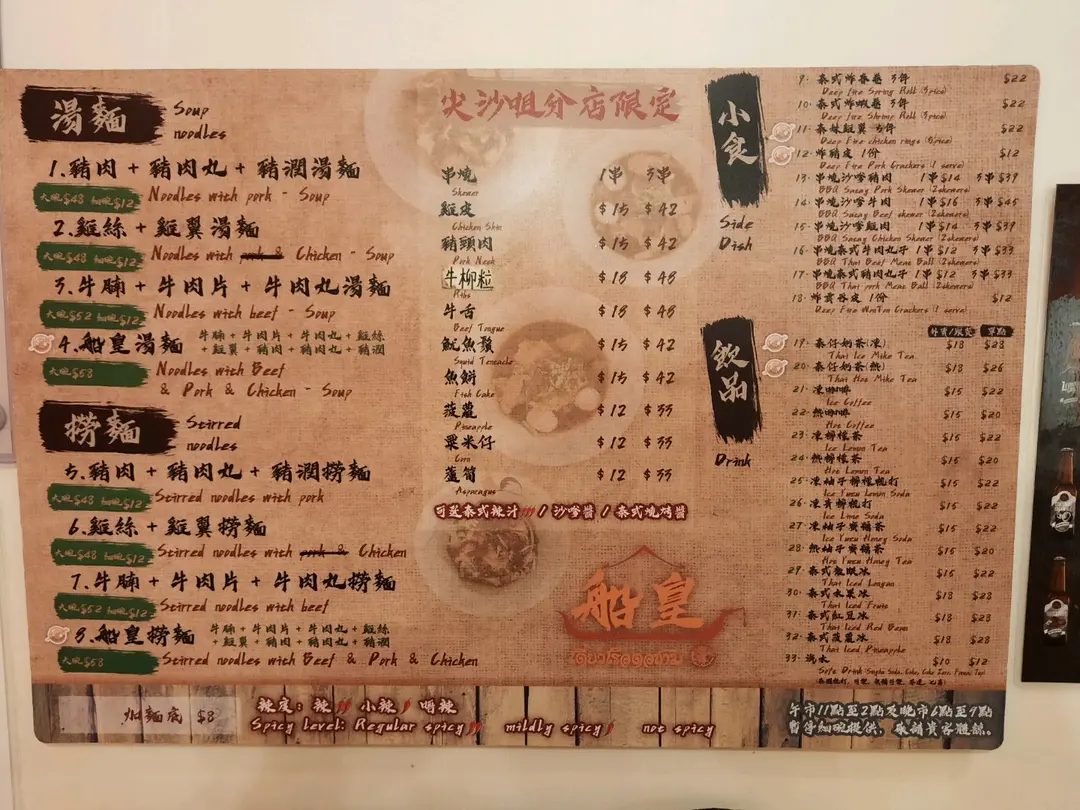 湯麵
Soup
noodles
1.豬肉 + 豬肉丸 + 豬潤湯麵
大碗$48 細碗$12
Noodles with pork - Soup
2.雞絲 + 雞翼湯麵
大碗$48 細碗$12
Noodles with pork & Chicken - Soup
3.牛腩 + 牛肉片 + 牛肉丸湯麵
大碗$52 細碗$12
Noodles with beef - Soup
4.船皇湯麵
牛腩 + 牛肉片 + 牛肉丸 + 雞絲
+ 雞翼 + 豬肉 + 豬肉丸 + 豬潤
大碗$58
Noodles with Beef
& Pork & Chicken - Soup
撈麵
Stirred
noodles
5.豬肉 + 豬肉丸 + 豬潤撈麵
大碗$48 細碗$12
Stirred noodles with pork
6.雞絲 + 雞翼撈麵
大碗$48 細碗$12
Stirred noodles with pork & Chicken
7.牛腩 + 牛肉片 + 牛肉丸撈麵
大碗$52 細碗$12
Stirred noodles with beef
8.船皇撈麵
牛腩 + 牛肉片 + 牛肉丸 + 雞絲
+ 雞翼 + 豬肉 + 豬肉丸 + 豬潤
大碗$58
Stirred noodles with Beef & Pork & Chicken
尖沙咀分店限定
串燒 1串 3串
Skewer
雞皮 $15 $42
Chicken Skin
豬頸肉 $15 $42
Pork Neck
牛柳粒 $18 $48
Ribs
牛舌 $18 $48
Beef Tongue
魷魚鬚 $15 $42
Squid Tentacle
魚餅 $15 $42
Fish Cake
菠蘿 $12 $33
Pineapple
粟米仔 $12 $33
Corn
蘆筍 $12 $33
Asparagus
可選泰式辣汁 / 沙嗲醬 / 泰式燒烤醬
船皇
小食
Side
Dish
9. 泰式炸春卷 3件 $22
Deep fire Spring Roll (3pice)
10. 泰式炸蝦卷 3件 $22
Deep fire Shrimp Roll (3pice)
11. 泰妹雞翼 5件 $22
Deep Fire chicken wings (5pice)
12. 炸豬皮 1份 $12
Deep Fire Pork Crackers (1 serve)
13. 串燒沙嗲豬肉 1串$14 3串$39
BBQ Satay Pork Skewer (2skewers)
14. 串燒沙嗲牛肉 1串$16 3串$45
BBQ Satay Beef skewer (2skewers)
15. 串燒沙嗲雞肉 1串$14 3串$39
BBQ Satay Chicken Skewer (2skewers)
16. 串燒泰式牛肉丸子 1串$12 3串$33
BBQ Thai Beef Meat Ball (2skewers)
17. 串燒泰式豬肉丸子 1串$12 3串$33
BBQ Thai pork Meat Ball (2skewers)
18. 炸雲吞皮 1份 $12
Deep Fire WonTon Crackers (1 serve)
飲品
Drink
外賣/跟餐 單點
19. 泰仔奶茶(凍) $18 $28
Thai Ice Milk Tea
20. 泰仔奶茶(熱) $18 $26
Thai Hot Milk Tea
21. 凍咖啡 $15 $22
Ice Coffee
22. 熱咖啡 $15 $20
Hot Coffee
23. 凍檸檬茶 $15 $22
Ice Lemon Tea
24. 熱檸檬茶 $15 $20
Hot Lemon Tea
25. 凍柚子檸梳打 $15 $22
Ice Yuzu Lemon Soda
26. 凍青檸梳打 $15 $22
Ice Lime Soda
27. 凍柚子蜜糖茶 $15 $22
Ice Yuzu Honey Soda
28. 熱柚子蜜糖茶 $15 $20
Hot Yuzu Honey Tea
29. 泰式龍眼冰 $15 $22
Thai Iced Longan
30. 泰式水果冰 $18 $28
Thai Iced Fruits
31. 泰式紅豆冰 $18 $28
Thai Iced Red Bean
32. 泰式菠蘿冰 $18 $28
Thai Iced Pineapple
33. 汽水 $10 $12
加麵底 $8
辣度: 辣 小辣 唔辣
Spicy Level: Regular spicy mildly spicy not spicy
午市11點至2點及晚市6點至9點
暫停細碗提供，敬請貴客體諒。